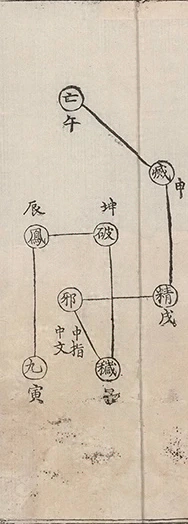 亡
午
滅
申
坤
辰
破
鳳
邪
精
戌
中指
中文
穢
九
寅